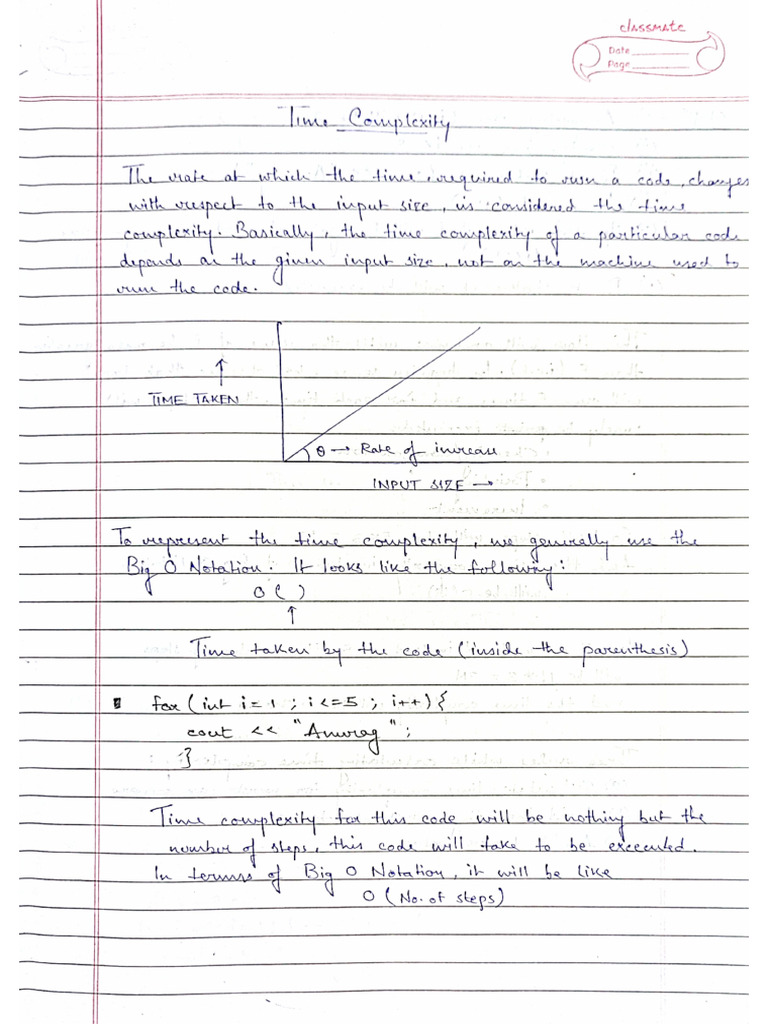 classmate
Date
Page
Time Complexity
The rate at which the time, required to run a code, changes
with respect to the input size, is considered the time
complexity. Basically, the time complexity of a particular code
depends on the given input size, not on the machine used to
run the code.
↑
TIME TAKEN
θ → Rate of increase
INPUT SIZE →
To represent the time complexity, we generally use the
Big O Notation. It looks like the following:
O ( )
↑
Time taken by the code (inside the parenthesis)
for (int i = 1 ; i <= 5 ; i++) {
cout << "Anurag" ;
}
Time complexity for this code will be nothing but the
number of steps, this code will take to be executed.
In terms of Big O Notation, it will be like
O (No. of steps)